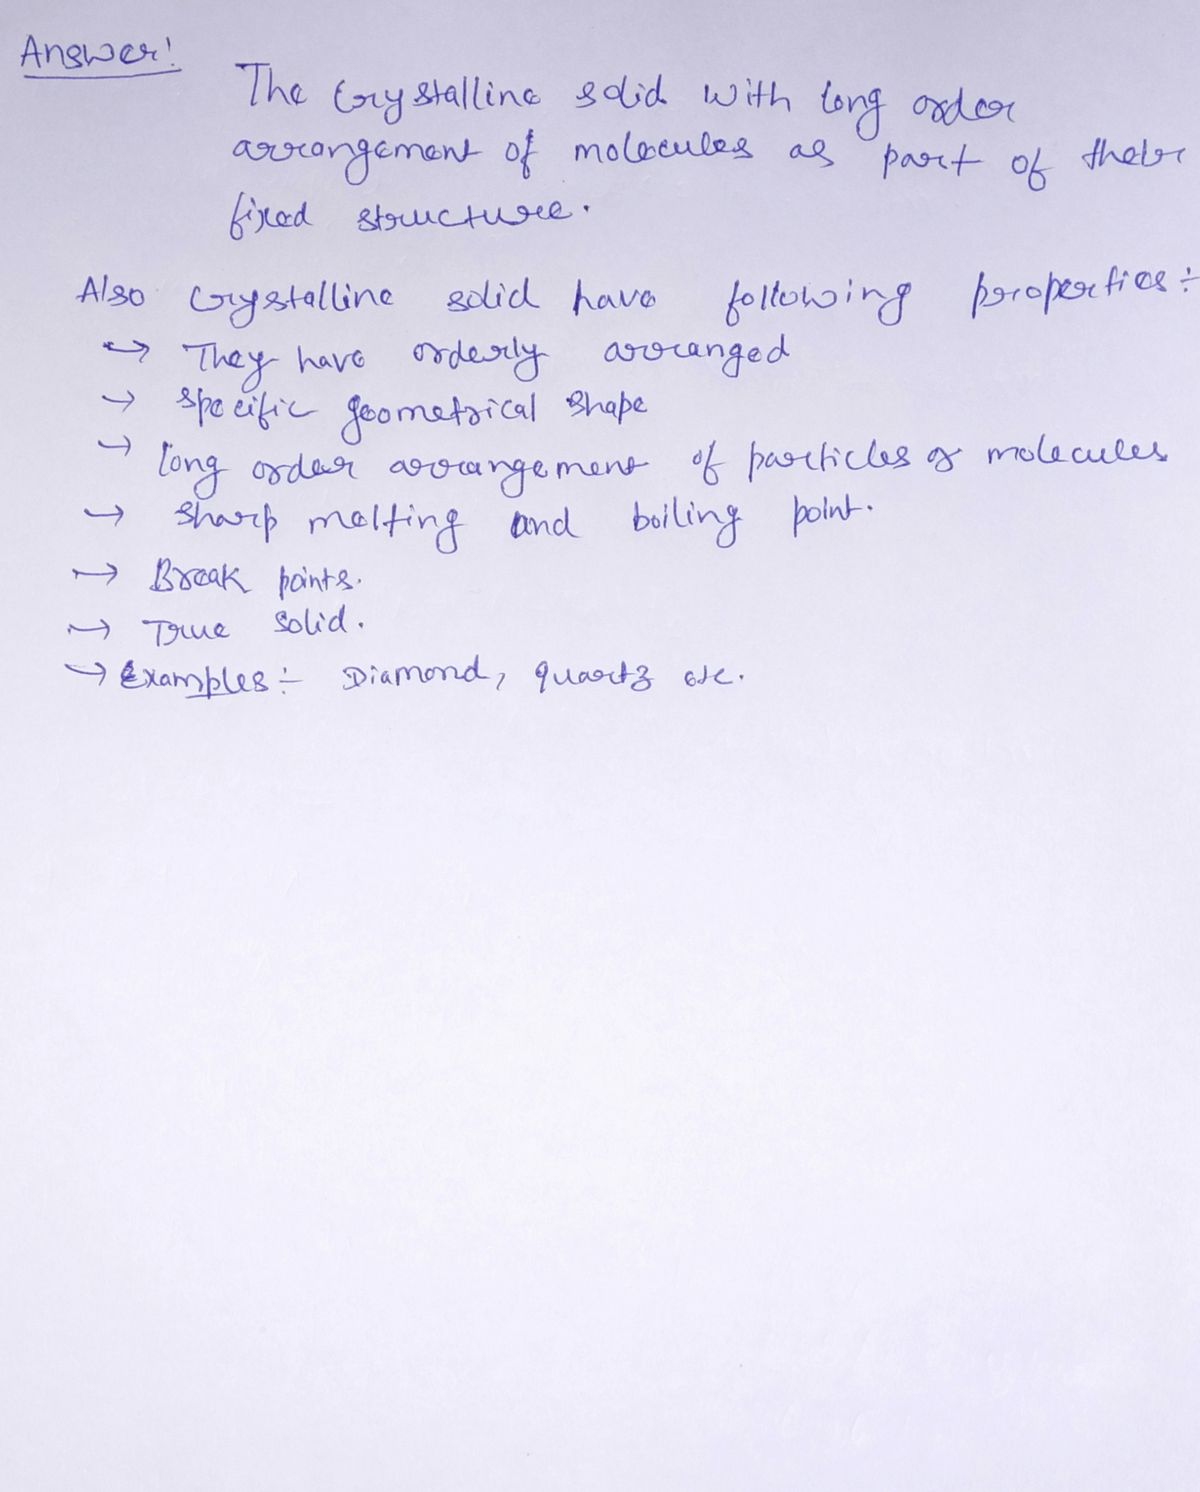 Answer!
The Crystalline solid with long order
arrangement of molecules as part of their
fixed structure.
Also Crystalline solid have following properties:-
→ They have orderly arranged
→ specific geometrical shape
→ long order arrangement of particles or molecules
→ sharp melting and boiling point.
→ Break points.
→ True solid.
→ Examples:- Diamond, quartz etc.